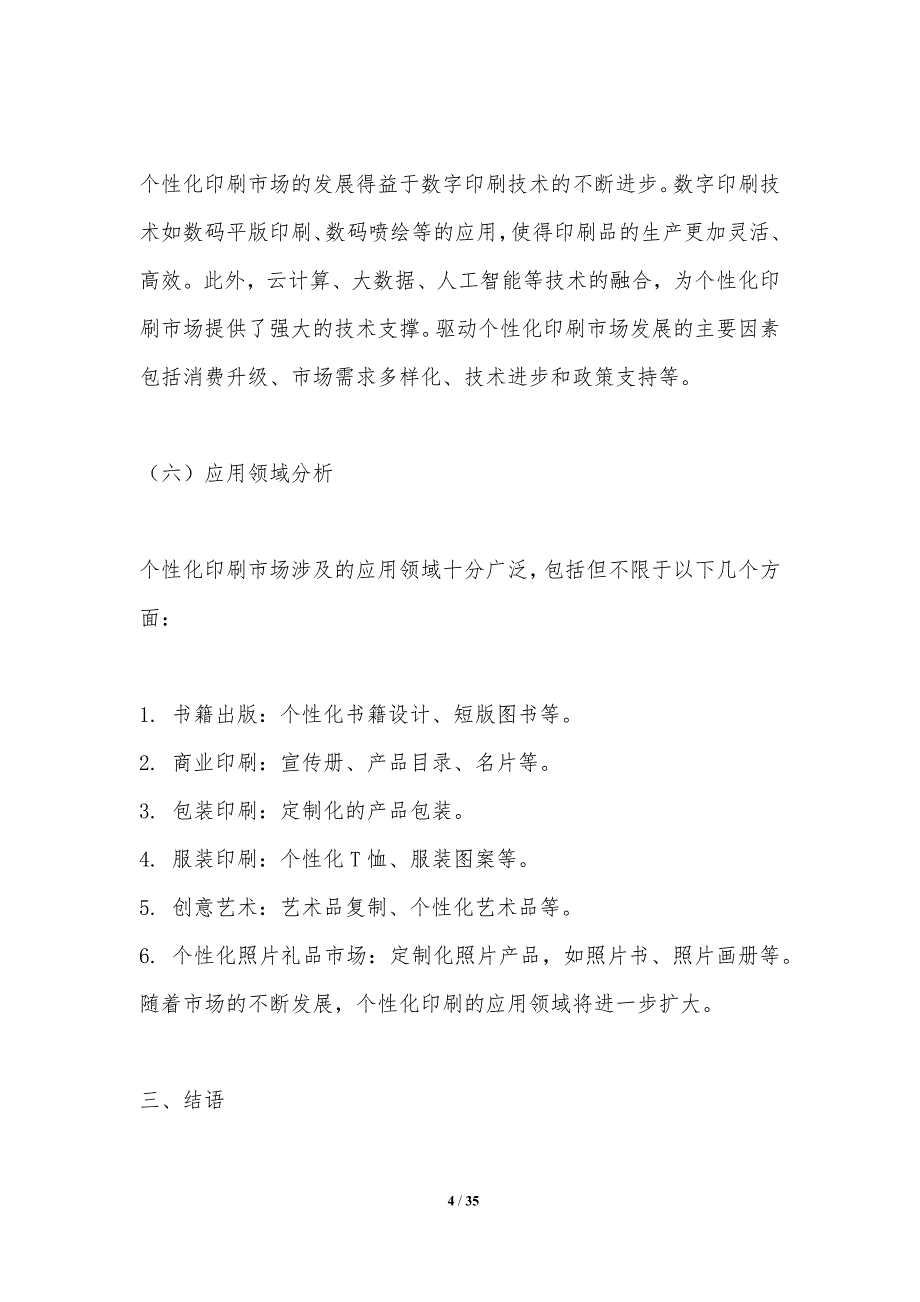 个性化印刷市场的发展得益于数字印刷技术的不断进步。数字印刷技
术如数码平版印刷、数码喷绘等的应用，使得印刷品的生产更加灵活、
高效。此外，云计算、大数据、人工智能等技术的融合，为个性化印
刷市场提供了强大的技术支撑。驱动个性化印刷市场发展的主要因素
包括消费升级、市场需求多样化、技术进步和政策支持等。
（六）应用领域分析
个性化印刷市场涉及的应用领域十分广泛，包括但不限于以下几个方
面：
1. 书籍出版：个性化书籍设计、短版图书等。
2. 商业印刷：宣传册、产品目录、名片等。
3. 包装印刷：定制化的产品包装。
4. 服装印刷：个性化 T 恤、服装图案等。
5. 创意艺术：艺术品复制、个性化艺术品等。
6. 个性化照片礼品市场：定制化照片产品，如照片书、照片画册等。
随着市场的不断发展，个性化印刷的应用领域将进一步扩大。
三、结语
4 / 35